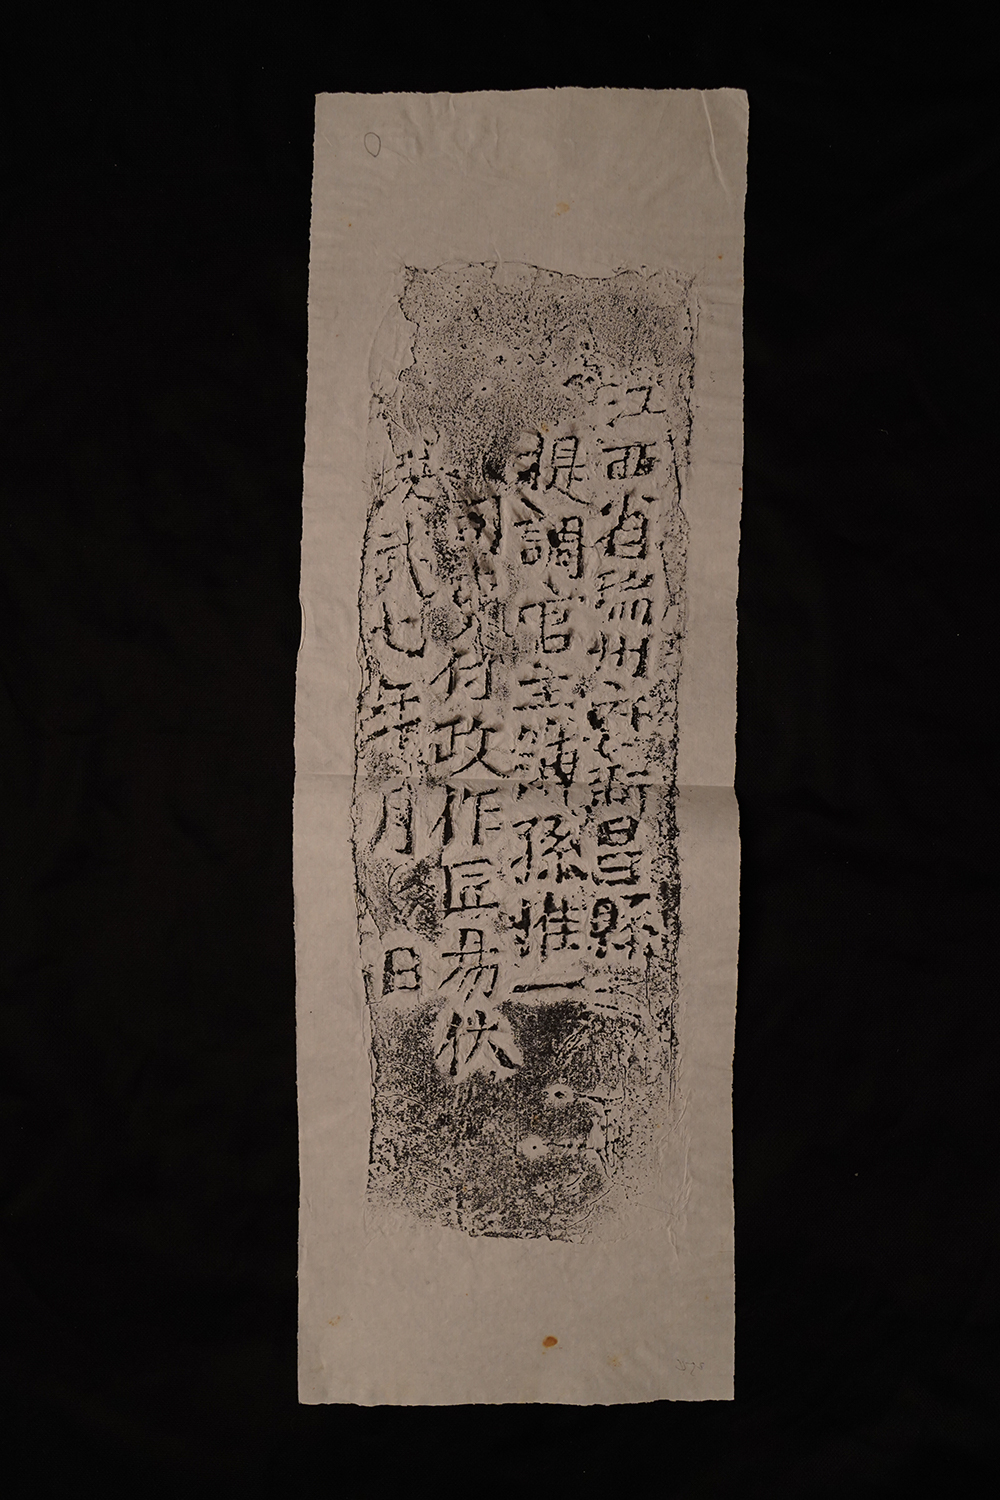 江西省瑞州府新昌縣
提調官主簿孫惟一
司吏付政作匠易伏
洪武七年 月 日